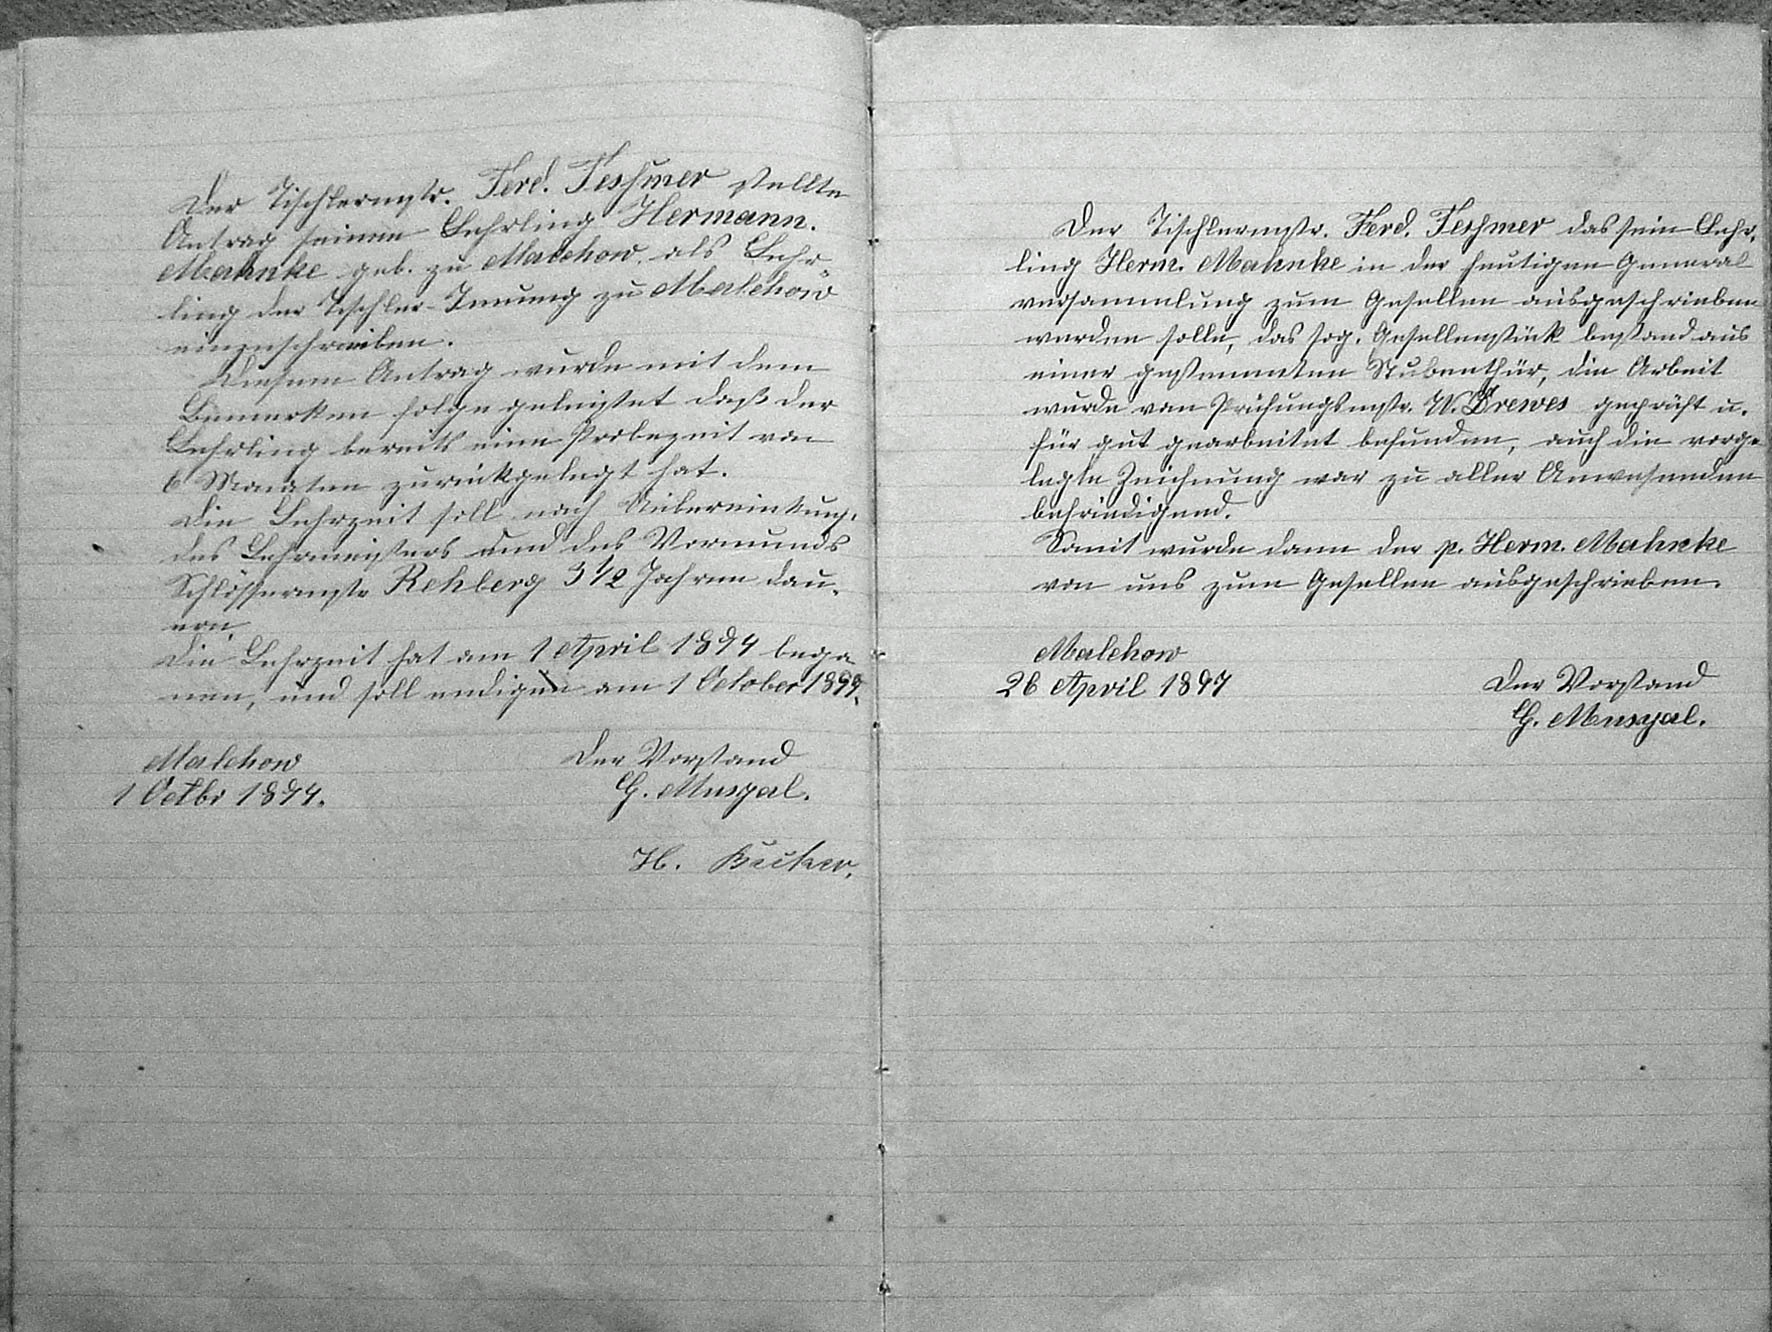 Der Tischlermstr. Ferd. Tessmer stellte
Antrag seinen Lehrling Hermann.
Mahnke geb. zu Malchow. als Lehr-
ling der Tischler-Innung zu Malchow
einzuschreiben.
Diesem Antrag wurde mit dem
Bemerken folge geleistet daß der
Lehrling bereits eine Probezeit von
6 Monaten zurückgelegt hat.
Die Lehrzeit soll nach Uibereinkung.
des Lehrmeisters und des Vormunds
Schlossermstr Rehberg 3 1/2 Jahren dau-
ern.
Die Lehrzeit hat am 1 April 1894 bega
nen, und soll endigen am 1 October 1897.
Malchow
1 Octbr 1894.
Der Vorstand
G. Musyal.
H. Bücker.
Der Tischlermstr. Ferd. Tessmer das sein Lehr-
ling Herm. Mahnke in der heutigen General
versammlung zum Gesellen ausgeschrieben
werden solle, das sog. Gesellenstück bestand aus
einer gestemmten Stubenthür, die Arbeit
wurde von Prüfungsmstr. W. Drewes geprüft u.
für gut gearbeitet befunden, auch die vorge
legte Zeichnung war zu aller Anwesenden
befriedigend.
Somit wurde dann der p. Herm. Mahnke
von uns zum Gesellen ausgeschrieben.
Malchow
26 April 1897
Der Vorstand
G. Musyal.